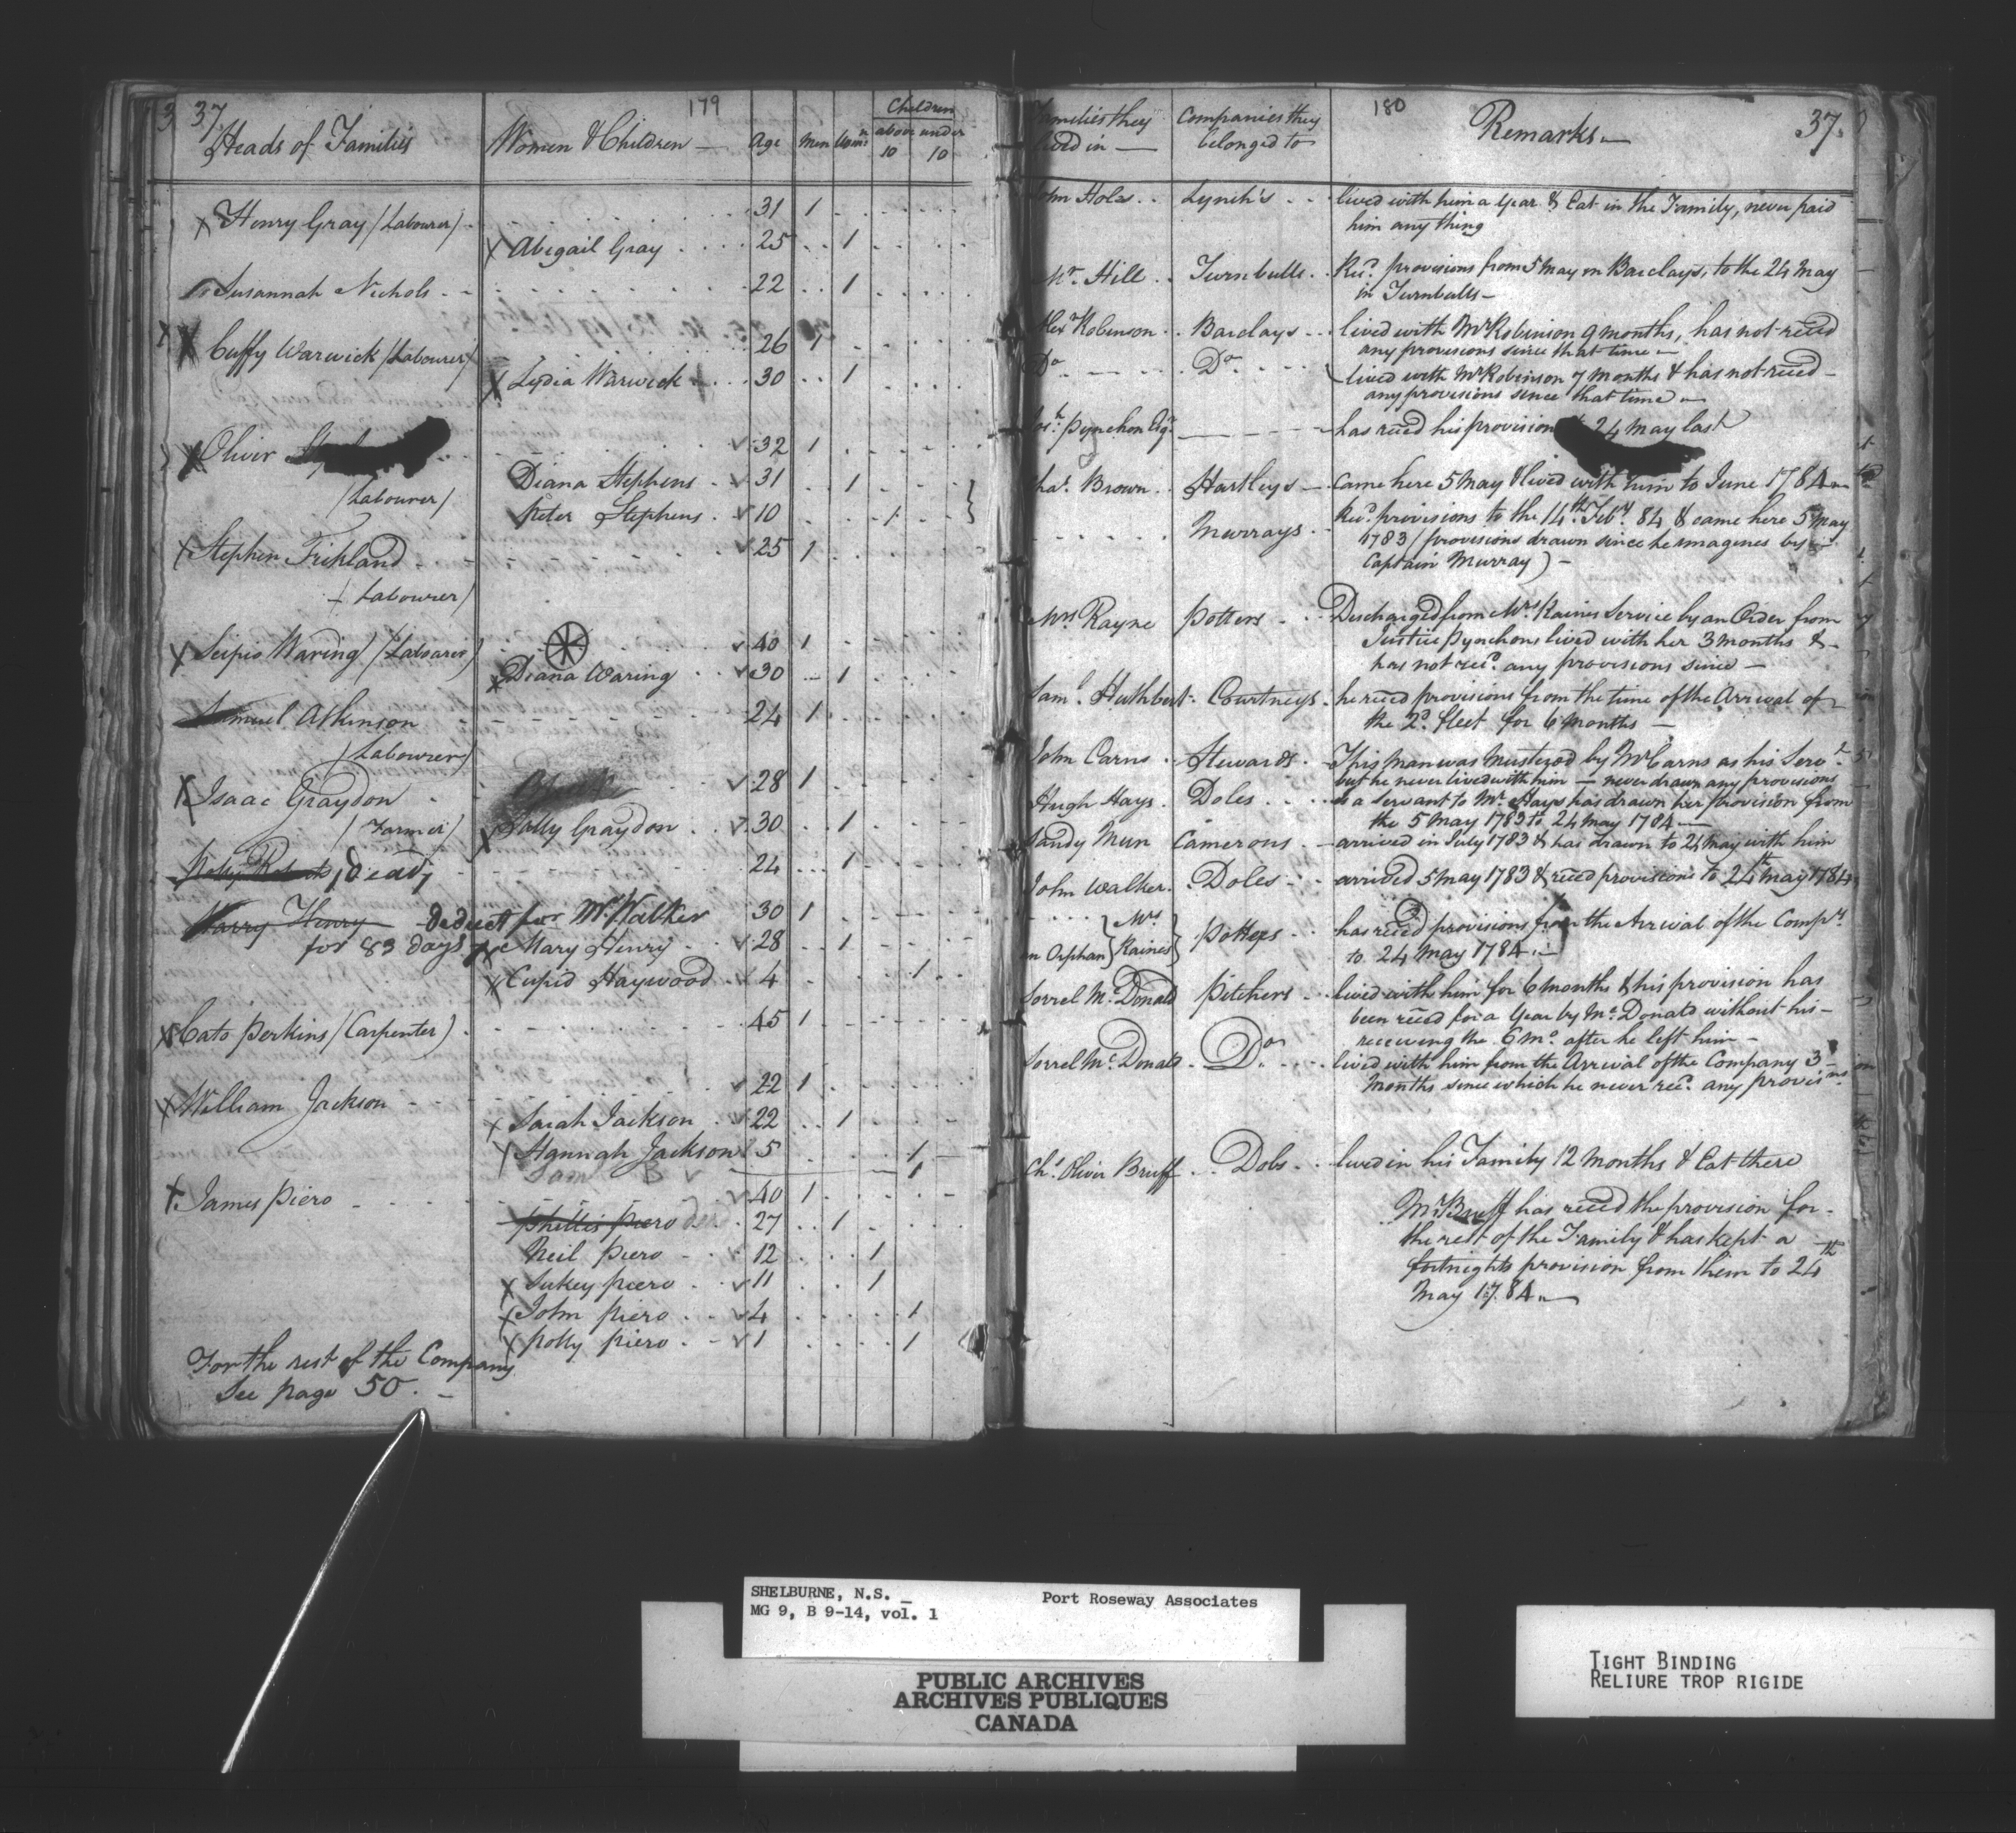 37
179
Heads of Families
Women & Children —
Age
Men
Children
above 10
under 10
Henry Gray / Labourer /
31 1
Abigail Gray
25 1
Susannah Nichols
22 1
Cuffy Warwick / Labourer /
26 1
Lydia Warwick
30 1
Oliver
32 1
Diana Stephens
31 1
/ Labourer /
Peter Stephens
10 1
Stephen Frickland
25 1
/ Labourer /
Scipio Waring / Labourer /
40 1
Diana Waring
30 1
Samuel Atkinson
24 1
/ Labourer /
Isaac Graydon
28 1
/ Farmer /
Sally Graydon
30 1
dead
24 1
Harry Henry
deduct for Mr. Walker
30 1
for 83 days
Mary Henry
28 1
Cupid Haywood
4 1
Cato Perkins / Carpenter /
45 1
William Jackson
22 1
Sarah Jackson
22 1
Hannah Jackson
5 1
1
James Piero
40 1
Phillis Piero
27 1
Neil Piero
12 1
Sukey Piero
11 1
John Piero
4 1
Polly Piero
1 1
For the rest of the Company
See page 50. —
180
37.
Families they lived in —
Companies they belonged to
Remarks —
John Holes
Lynch's
lived with him a Year & Eat in the Family, never paid
him any thing
Mr. Hill
Turnbulls
Recd. provisions from 5 May in Barclays, to the 24 May
in Turnbulls —
Alexr Robinson
Barclays
lived with Mr Robinson 9 months, has not recd
any provisions since that time —
Do
Do
lived with Mr Robinson 7 months & has not recd —
any provisions since that time —
Josh. Pynchon Esqr.
has recd his provision 24 May last
Chas. Brown
Hartleys
came here 5 May & lived with him to June 1784 —
Murrays
Recd. provisions to the 14th Feby. 84 & came here 5 May
1783 / provisions drawn since he imagenes by —
Captain Murray ) —
Mrs Rayne
Potters
Discharged from Mrs Raines Service by an Order from
Justice Pynchons lived with her 3 months & —
has not recd. any provisions since —
Saml. Huthbert
Courtneys
he recd provisions from the time of the Arrival of
the 2d. fleet for 6 months —
John Carns
Stewards
This man was Mustered by Mr Carns as his Servt.
but he never lived with him — never drawn any provisions
Hugh Hays
Doles
as a Servant to Mr. Hays has drawn her provision from
the 5 May 1783 to 24 May 1784 —
Sandy Mun
Camerons
arrived in July 1783 & has drawn to 24 May with him
John Walker
Doles
arrived 5 May 1783 & recd provisions to 24th May 1784
an Orphan } Mrs Raines }
Potters
has recd provisions from the Arrival of the Compy.
to 24 May 1784. —
Sorrel Mc. Donald
Pitchers
lived with him for 6 months & his provision has
been recd for a Year by Mc. Donald without his —
receiving the 6 mo. after he left him —
Sorrel Mc. Donald
Do.
lived with him from the Arrival of the Company 3
months since which he never recd. any provisions
Chs. Oliver Bruff
Dobs
lived in his Family 12 months & Eat there
Mr Bruff has recd the provision for —
the rest of the Family & has kept a —
fortnights provision from them to 24th
May 1784. —
SHELBURNE, N.S. _
MG 9, B 9-14, vol. 1
Port Roseway Associates
PUBLIC ARCHIVES
ARCHIVES PUBLIQUES
CANADA
TIGHT BINDING
RELIURE TROP RIGIDE